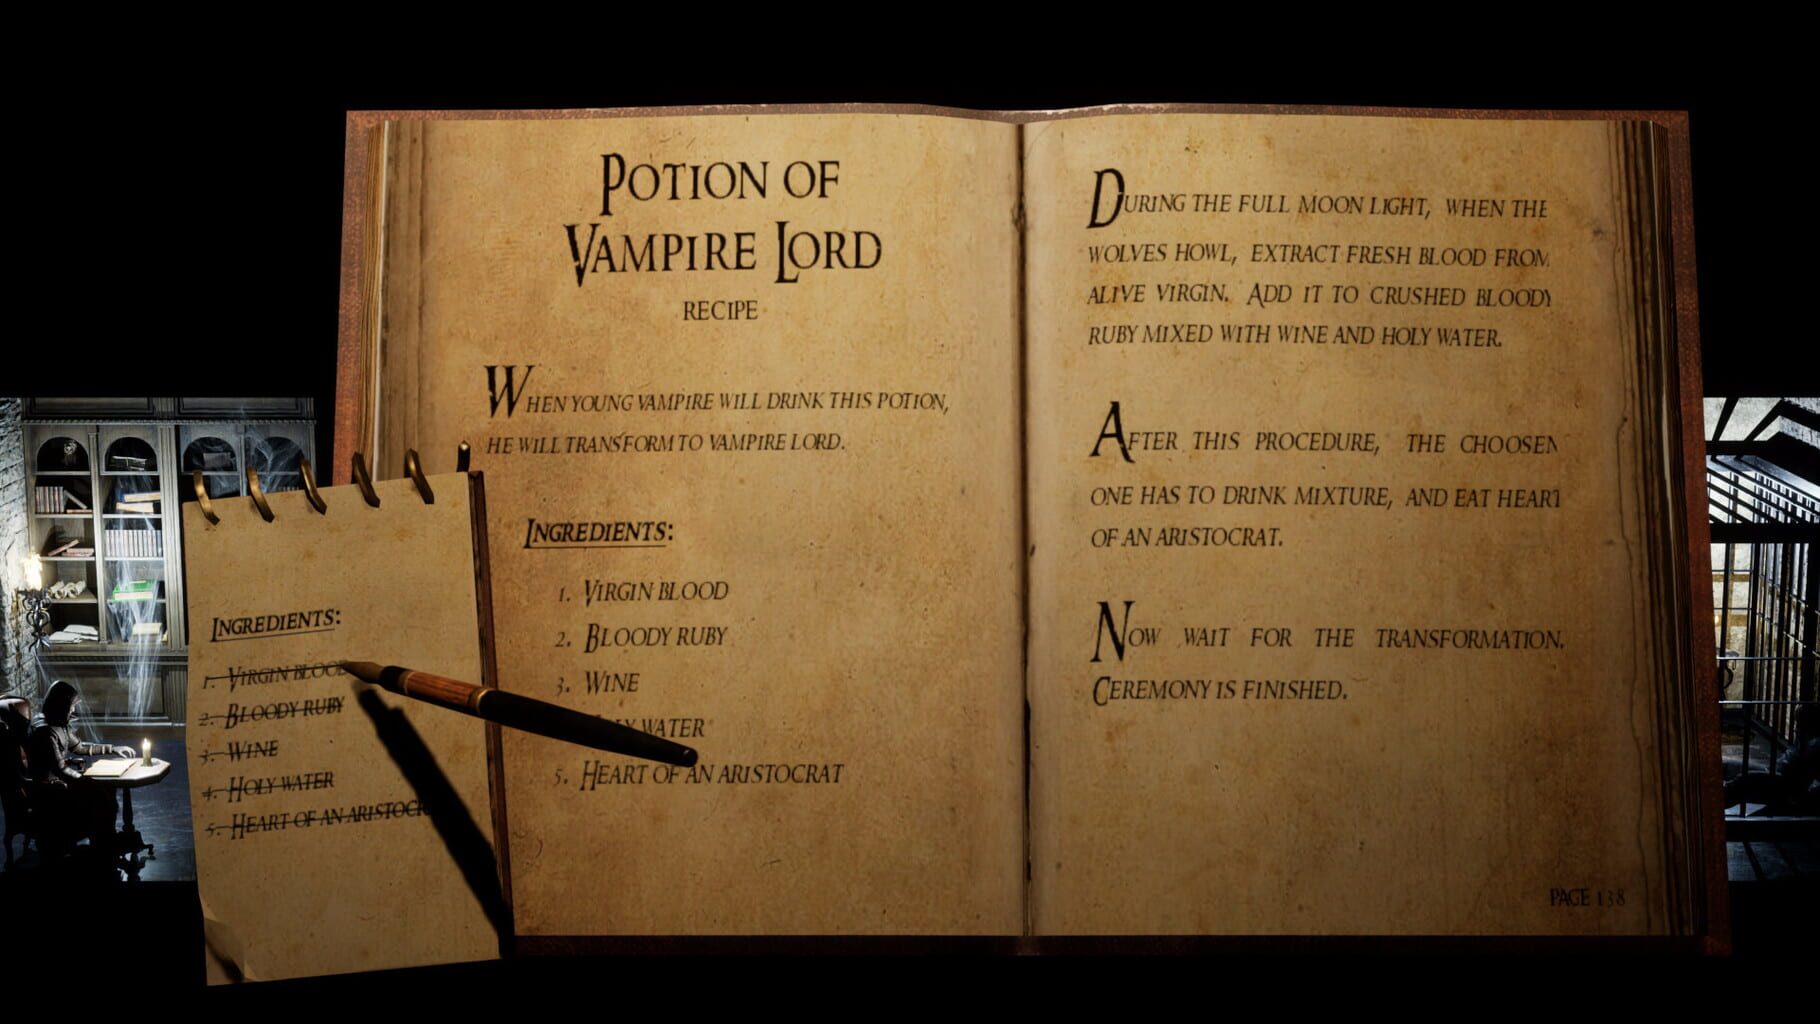 Potion of
Vampire Lord
recipe
When young vampire will drink this potion,
he will transform to vampire lord.
Ingredients:
1. Virgin blood
2. Bloody ruby
3. Wine
water
5. Heart of an aristocrat
During the full moon light, when the
wolves howl, extract fresh blood from
alive virgin. Add it to crushed bloody
ruby mixed with wine and holy water.
After this procedure, the choosen
one has to drink mixture, and eat heart
of an aristocrat.
Now wait for the transformation.
Ceremony is finished.
Page 138
Ingredients:
1. Virgin blood
2. Bloody ruby
3. Wine
4. Holy water
5. Heart of an